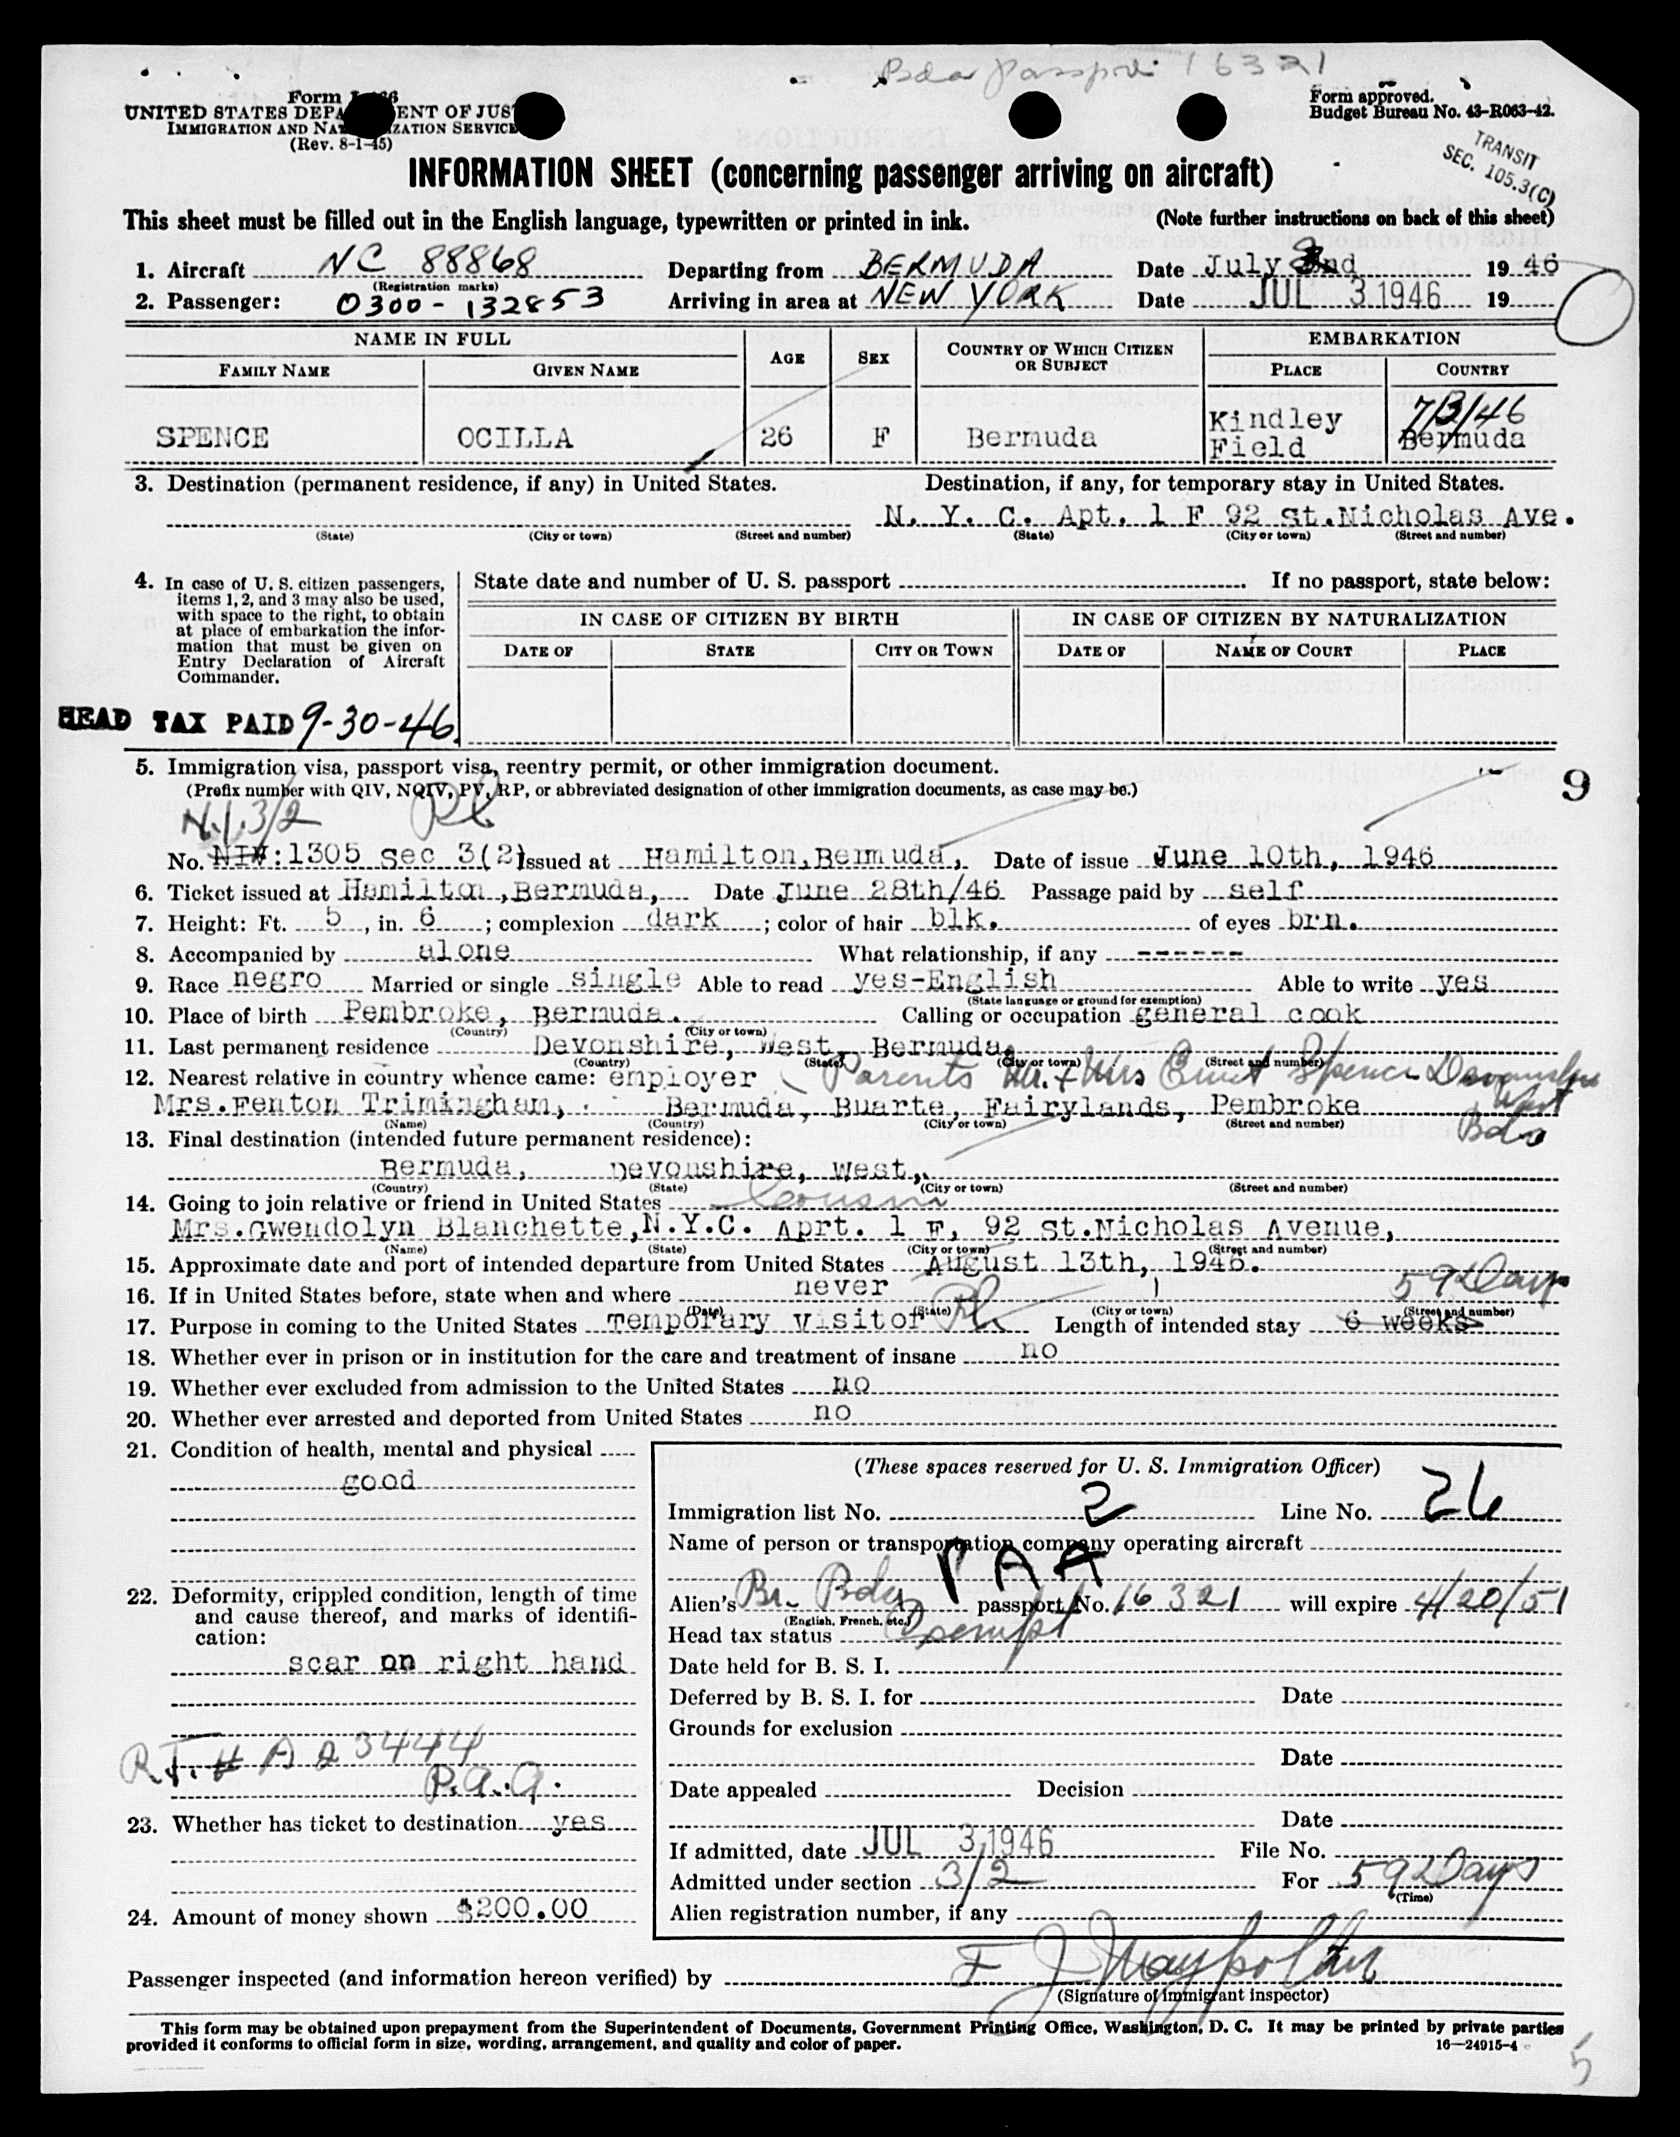 Bda Passport 16321
Form I-466
UNITED STATES DEPARTMENT OF JUSTICE
IMMIGRATION AND NATURALIZATION SERVICE
(Rev. 8-1-45)
Form approved.
Budget Bureau No. 43-R063-42.
TRANSIT
SEC. 105.3(C)
INFORMATION SHEET (concerning passenger arriving on aircraft)
This sheet must be filled out in the English language, typewritten or printed in ink. (Note further instructions on back of this sheet)
1. Aircraft NC 88868 Departing from BERMUDA Date July 3nd 1946
(Registration marks)
2. Passenger: 0300-132853 Arriving in area at NEW YORK Date JUL 3 1946 19
NAME IN FULL AGE SEX COUNTRY OF WHICH CITIZEN OR SUBJECT EMBARKATION
FAMILY NAME GIVEN NAME PLACE COUNTRY
7/3/46
SPENCE OCILLA 26 F Bermuda Kindley Field Bermuda
3. Destination (permanent residence, if any) in United States. Destination, if any, for temporary stay in United States.
N. Y. C. Apt. 1 F 92 St.Nicholas Ave.
(State) (City or town) (Street and number) (State) (City or town) (Street and number)
4. In case of U. S. citizen passengers,
items 1, 2, and 3 may also be used,
with space to the right, to obtain
at place of embarkation the infor-
mation that must be given on
Entry Declaration of Aircraft
Commander.
State date and number of U. S. passport If no passport, state below:
IN CASE OF CITIZEN BY BIRTH IN CASE OF CITIZEN BY NATURALIZATION
DATE OF STATE CITY OR TOWN DATE OF NAME OF COURT PLACE
HEAD TAX PAID 9-30-46
5. Immigration visa, passport visa, reentry permit, or other immigration document.
9
(Prefix number with QIV, NQIV, PV, RP, or abbreviated designation of other immigration documents, as case may be.)
N.I. 3/2
No. NIV:1305 Sec 3(2) Issued at Hamilton,Bermuda, Date of issue June 10th, 1946
6. Ticket issued at Hamilton,Bermuda, Date June 28th/46 Passage paid by self
7. Height: Ft. 5, in. 6; complexion dark; color of hair blk. of eyes brn.
8. Accompanied by alone What relationship, if any ------
9. Race negro Married or single single Able to read yes-English Able to write yes
(State language or ground for exemption)
10. Place of birth Pembroke, Bermuda. Calling or occupation general cook
(Country) (City or town)
11. Last permanent residence Devonshire, West, Bermuda,
(Country) (State) (City or town) (Street and number)
12. Nearest relative in country whence came: employer Parents Mr. & Mrs Ernest Spence Devonshire
West
Mrs.Fenton Trimingham, Bermuda, Buarte, Fairylands, Pembroke
(Name) (Country) (City or town) (Street and number)
Bda
13. Final destination (intended future permanent residence):
Bermuda, Devonshire, West,
(Country) (State) (City or town) (Street and number)
14. Going to join relative or friend in United States Cousin
Mrs.Gwendolyn Blanchette,N.Y.C. Aprt. 1 F, 92 St.Nicholas Avenue,
(Name) (State) (City or town) (Street and number)
15. Approximate date and port of intended departure from United States August 13th, 1946.
16. If in United States before, state when and where never 59 Days
(Date) (State) (City or town) (Street and number)
17. Purpose in coming to the United States Temporary Visitor Length of intended stay 6 weeks
18. Whether ever in prison or in institution for the care and treatment of insane no
19. Whether ever excluded from admission to the United States no
20. Whether ever arrested and deported from United States no
21. Condition of health, mental and physical
good
22. Deformity, crippled condition, length of time
and cause thereof, and marks of identifi-
cation:
scar on right hand
R.T. # A 23444
P.A.A.
23. Whether has ticket to destination yes
24. Amount of money shown $200.00
(These spaces reserved for U. S. Immigration Officer)
Immigration list No. 2 Line No. 26
Name of person or transportation company operating aircraft
PAA
Alien's Br. Bda passport No. 16321 will expire 4/20/51
(English, French, etc.)
Head tax status Exempt
Date held for B. S. I.
Deferred by B. S. I. for Date
Grounds for exclusion
Date
Date appealed Decision
Date
If admitted, date JUL 3 1946 File No.
Admitted under section 3/2 For 59 Days
(Time)
Alien registration number, if any
Passenger inspected (and information hereon verified) by F J
(Signature of immigrant inspector)
This form may be obtained upon prepayment from the Superintendent of Documents, Government Printing Office, Washington, D. C. It may be printed by private parties
provided it conforms to official form in size, wording, arrangement, and quality and color of paper. 16—24915-4
5